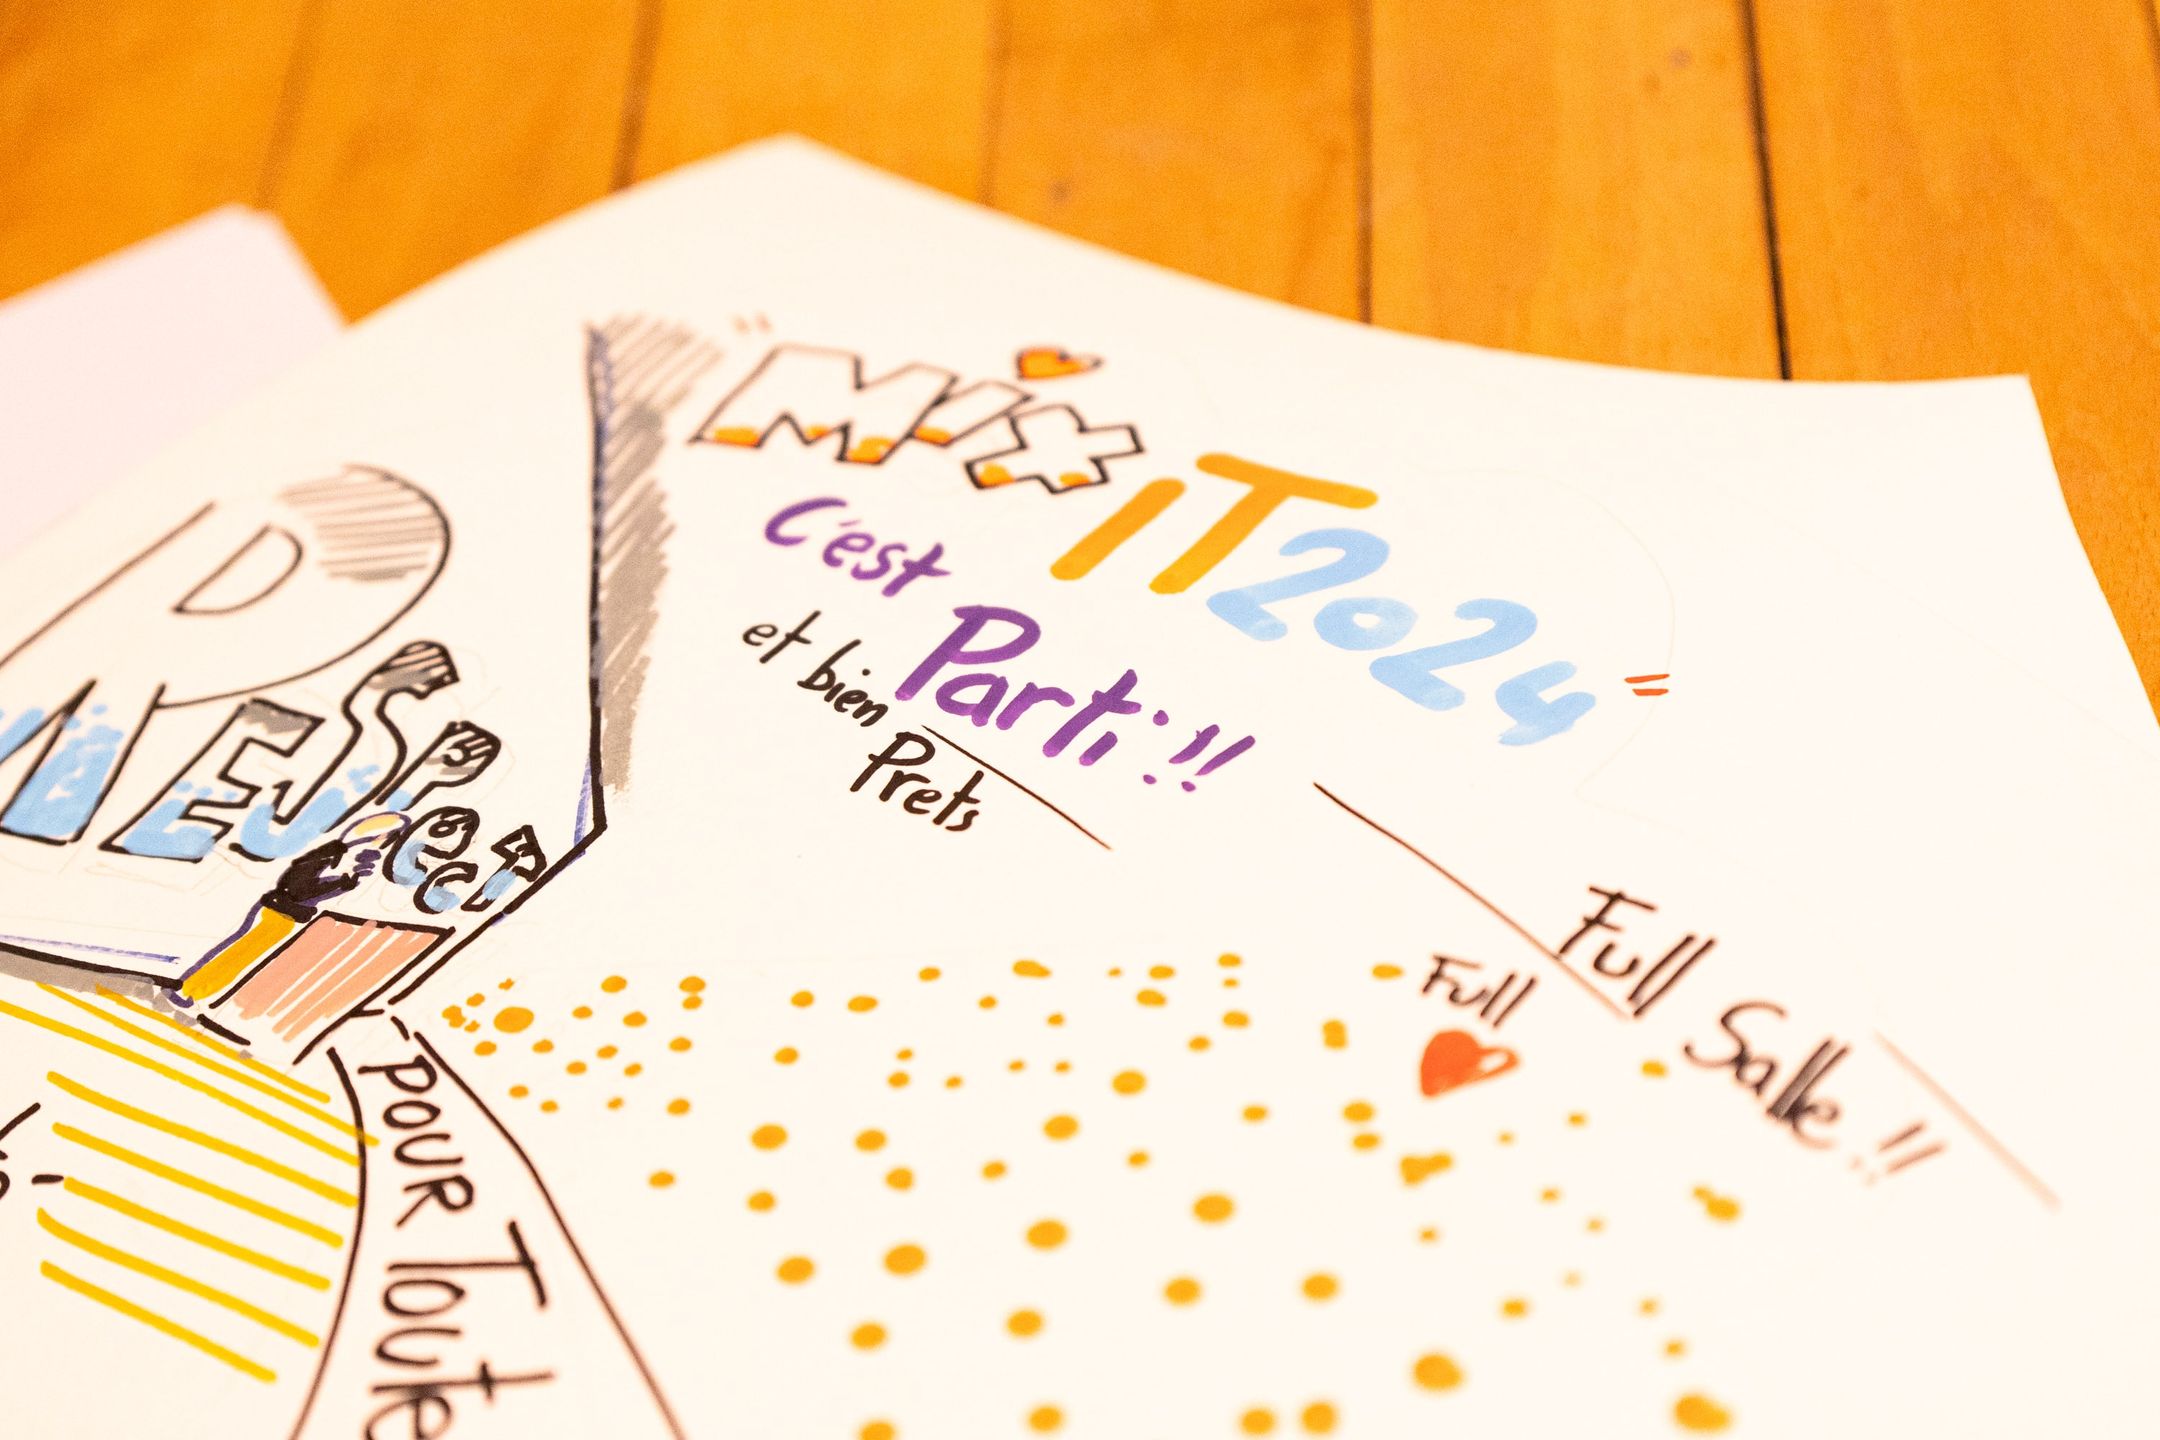 "Mix IT 2024"
C'est
Parti !!
et bien
Prets
Full Salle !!
Full
RESPECT
pour Toute